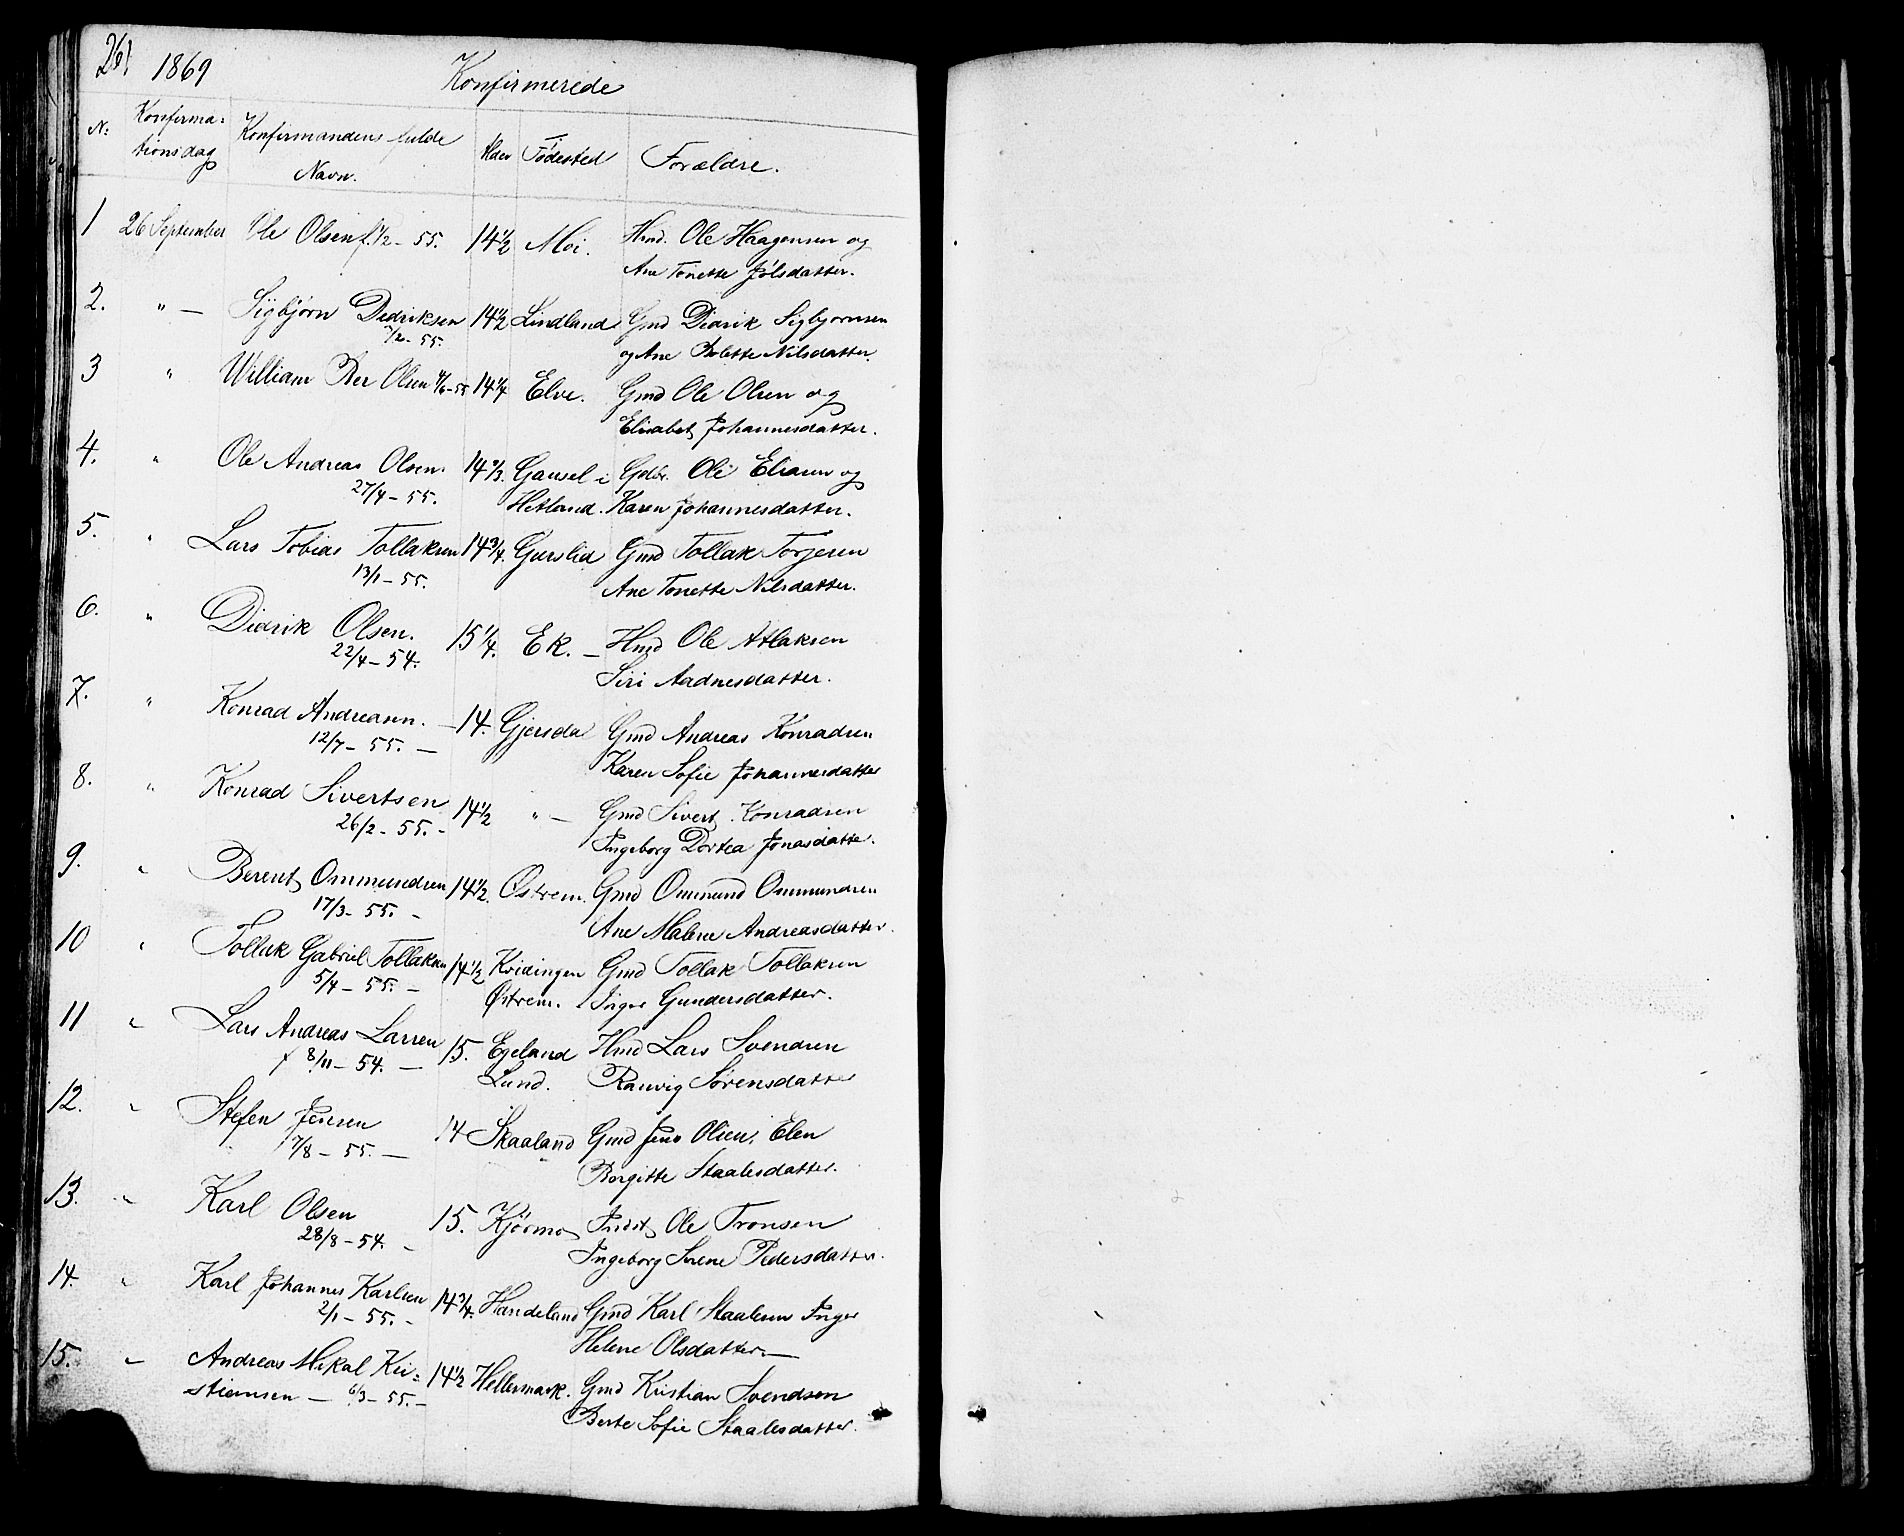 261 1869 Konfirmerede
N: Konfirma- Konfirmandens fulde Alder Födested Forældre.
tionsdag Navn.
1 26 September Ole Olsen f. 1/2 - 55. 14 1/2 Moi. Hmd. Ole Haagensen og
Ane Tonette Jölsdatter.
2. " — Sigbjörn Didriksen 14 1/2 Lindland Gmd Didrik Sigbjornsen
7/2 - 55. og Ane Bolette Nilsdatter.
3 " William Ber Olsen 14 1/4 Elve. Gmd Ole Olsen og
Elisabet Johannesdatter.
4. " Ole Andreas Olsen. 14 Gausel i Gdbr. Ole Eliasen og
27/4 - 55. Hetland. Karen Johannesdatter.
5. " Lars Tobias Tollaksen 14 3/4. Gurslid Gmd Tollak Torjesen
13/1 - 55. Ane Tonette Nilsdatter.
6. " Didrik Olsen. 15 1/4. Ek. — Hmd Ole Atlaksen
22/4 - 54. Siri Aadnesdatter.
7. " Konrad Andreasen. — 14. Gjersdal Gmd Andreas Konradsen
12/7 - 55. — Karen Sofie Johannesdatter
8. " Konrad Sivertsen 14 1/2 " — Gmd Sivert Konradsen
26/2 - 55. - Ingeborg Dortea Jonasdatter.
9. " Berent Ommundsen 14 1/2. Östrem. Gmd Ommund Ommundsen
17/3 - 55. - Ane Malene Andreasdatter.
10 " Tollak Gabriel Tollaksen 14 1/2 Kvidingen Gmd Tollak Tollaksen
5/4 - 55. - Östrem. Inger Gundersdatter.
11 " Lars Andreas Larsen 15. Egeland Hmd Lars Svendsen
f 8/11 - 54. — Lund. Ranvig Sörensdatter
12. " Stefen Jensen 14 Skaaland Gmd Jens Olsen, Elen
7/8 - 55. — Borgitte Staalesdatter.
13. " Karl Olsen 15. Kjörmo Indst Ole Tronsen
28/8 - 54. - Ingeborg Serene Pedersdatter.
14. " Karl Johannes Karlsen 14 3/4. Handeland Gmd Karl Staalesen Inger
2/1 - 55. - Helene Olsdatter. —
15. " Andreas Mikal Kri- 14 1/2 Hellersmark. Gmd Kristian Svendsen
stiansen — 6/3 - 55. - Berte Sofie Staalesdatter.